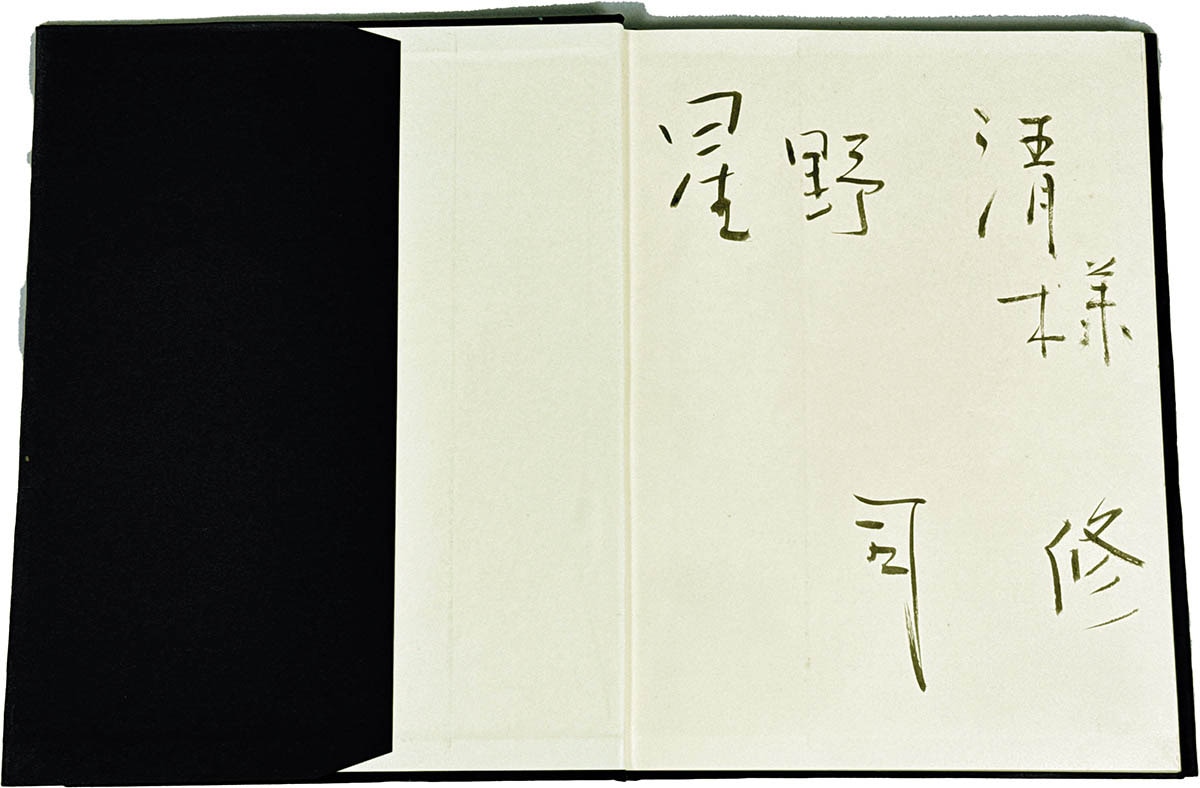 星野清様
司修